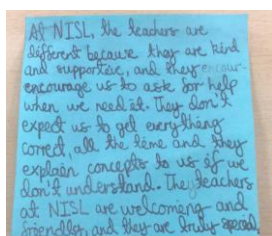 At NISL, the teachers are
different because they are kind
and supportive, and they encour-
encourage us to ask for help
when we need it. They don't
expect us to get everything
correct, all the time and they
explain concepts to us if we
don't understand. The teachers
at NISL are welcoming and
friendly, and they are truly special.